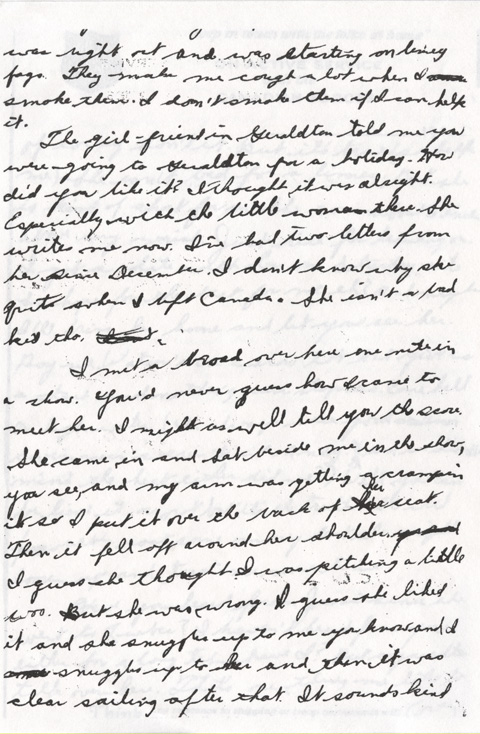 was right out and was starting on limey
fags. They make me cough a lot when I
smoke them. I don't smoke them if I can help
it.
The girl-friend in Geraldton told me you
were going to Geraldton for a holiday. How
did you like it? I thought it was alright.
Especially with the little woman there. She
writes me now. I've had two letters from
her since December. I don't know why she
quits when I left Canada. She isn't a bad
kid tho.
I met a broad over here one nite in
a show. You'd never guess how I came to
meet her. I might as well tell you the score.
She came in and sat beside me in the show,
you see, and my arm was getting a cramp in
it so I put it over the back of her seat.
Then it fell off around her shoulder
I guess she thought I was pitching a little
woo. But she was wrong. I guess she liked
it and she snuggles up to me ya know and I
snuggles up to her and then it was
clear sailing after that. It sounds kind